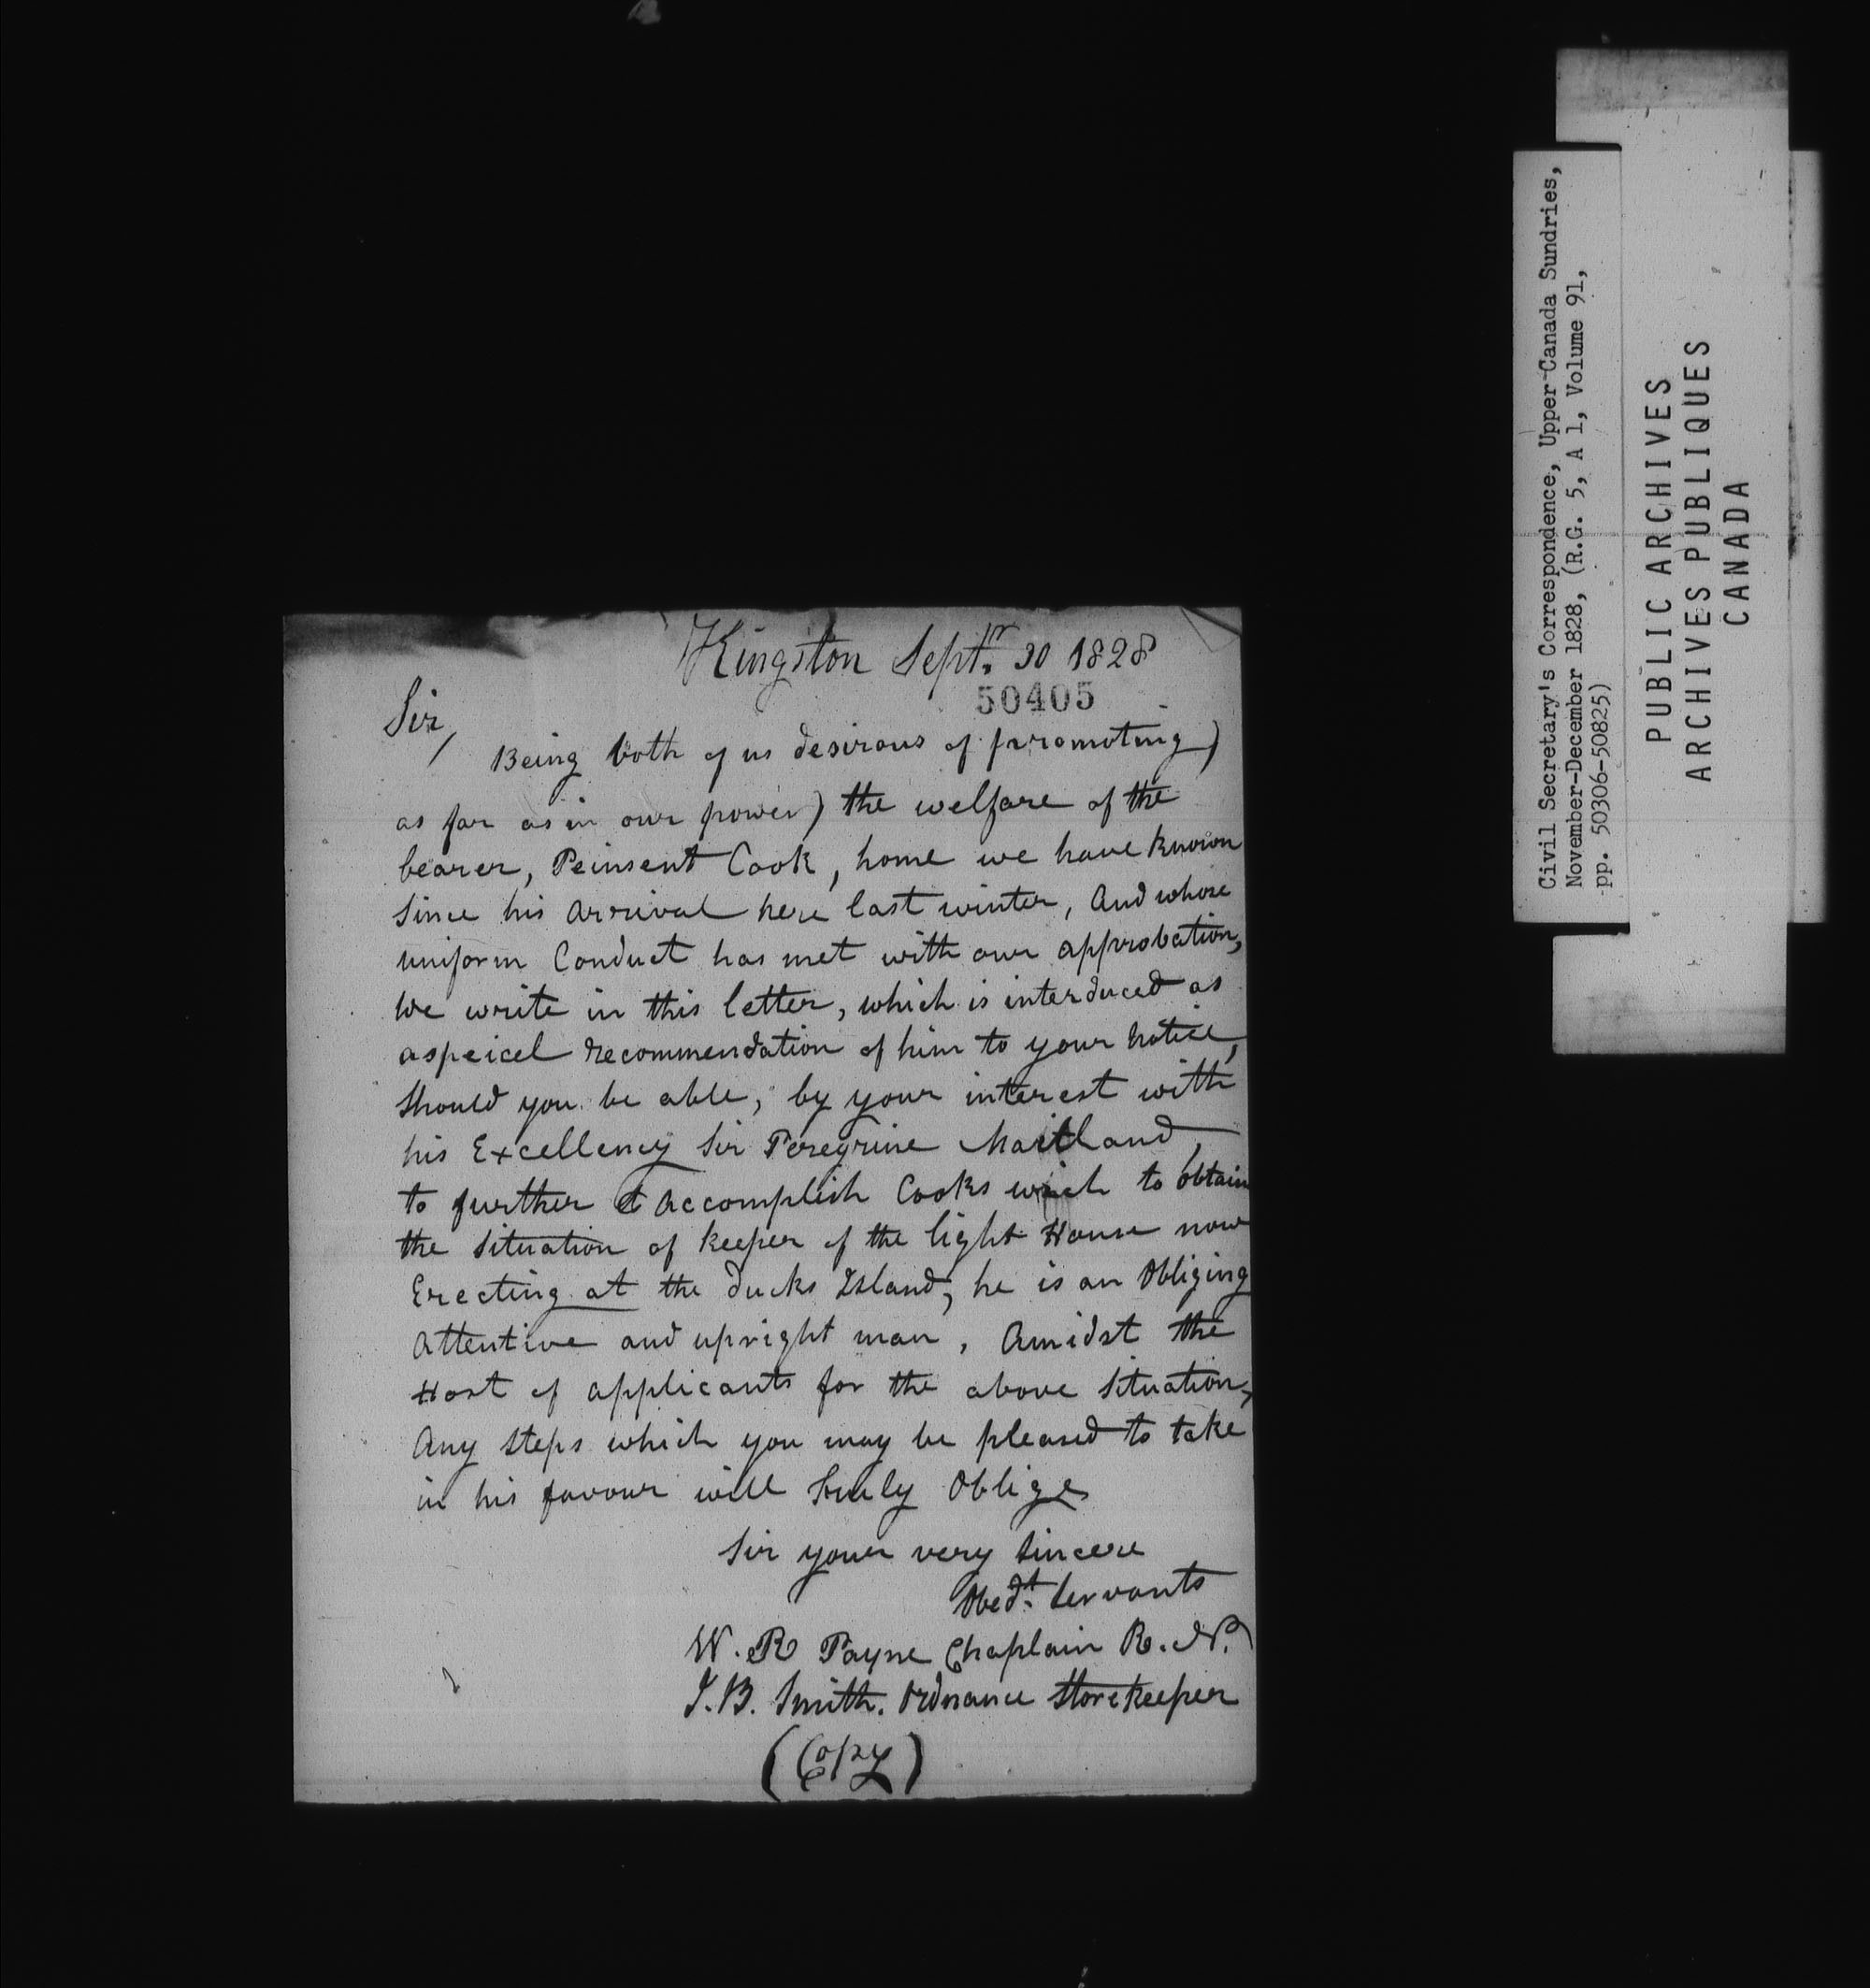 Kingston Septr. 30 1828
50405
Sir,
Being both of us desirous of promoting)
as far as in our power) the welfare of the
bearer, Peinsent Cook, home we have known
Since his arrival here last winter, And whose
uniform Conduct has met with our approbation,
We write in this letter, which is interduced as
aspeicel recommendation of him to your Notice,
Should you be able, by your interest with
his Excellency Sir Peregrine Maitland,
to further & Accomplish Cooks wish to obtain
the Situation of keeper of the light House now
Erecting at the Ducks Island, he is an Obliging
Attentive and upright man, Amidst the
Host of applicants for the above Situation,
Any Steps which you may be pleased to take
in his favour will Truly Oblige
Sir your very Sincere
Obedt. Servants
W. R Payne Chaplain R. N.
J. B. Smith. Ordnance Storekeeper
(Copy)
Civil Secretary's Correspondence, Upper Canada Sundries,
November-December 1828, (R.G. 5, A 1, Volume 91,
pp. 50306-50825)
PUBLIC ARCHIVES
ARCHIVES PUBLIQUES
CANADA